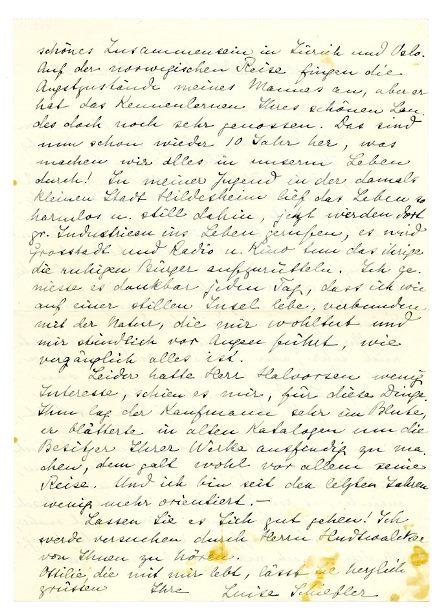 schönes Zusammensein in Zürich und Oslo.
Auf der norwegischen Reise fingen die
Angstzustände meines Mannes an, aber er
hat das Kennenlernen Ihres schönen Lan-
des doch noch sehr genossen. Das sind
nun schon wieder 10 Jahr her, was
machen wir alles in unserm Leben
durch! In meiner Jugend in der damals
kleinen Stadt Hildesheim lief das Leben so
harmlos u. still dahin, jetzt werden dort
gr. Industrieen ins Leben gerufen, es wird
Grosstadt und Radio u. Kino tun das ihrige
die ruhigen Bürger aufzurütteln. Ich ge-
niesse es dankbar jeden Tag, dass ich wie
auf einer stillen Insel lebe, verbunden
mit der Natur, die mir wohltut und
mir stündlich vor Augen führt, wie
vergänglich alles ist.
Leider hatte Herr Halvorsen wenig
Interesse, schien es mir, für diese Dinge.
Ihm lag der Kaufmann sehr im Blute,
er blätterte in alten Katalogen um die
Besitzer Ihrer Werke ausfindig zu ma-
chen, dem galt wohl vor allem seine
Reise. Und ich bin seit den letzten Jahren
wenig mehr orientiert.–
Lassen Sie es Sich gut gehen! Ich
werde versuchen durch Herrn Hudtwalcker
von Ihnen zu hören.
Ottilie, die mit mir lebt, lässt herzlich
grüssen Ihre Luise Schiefler